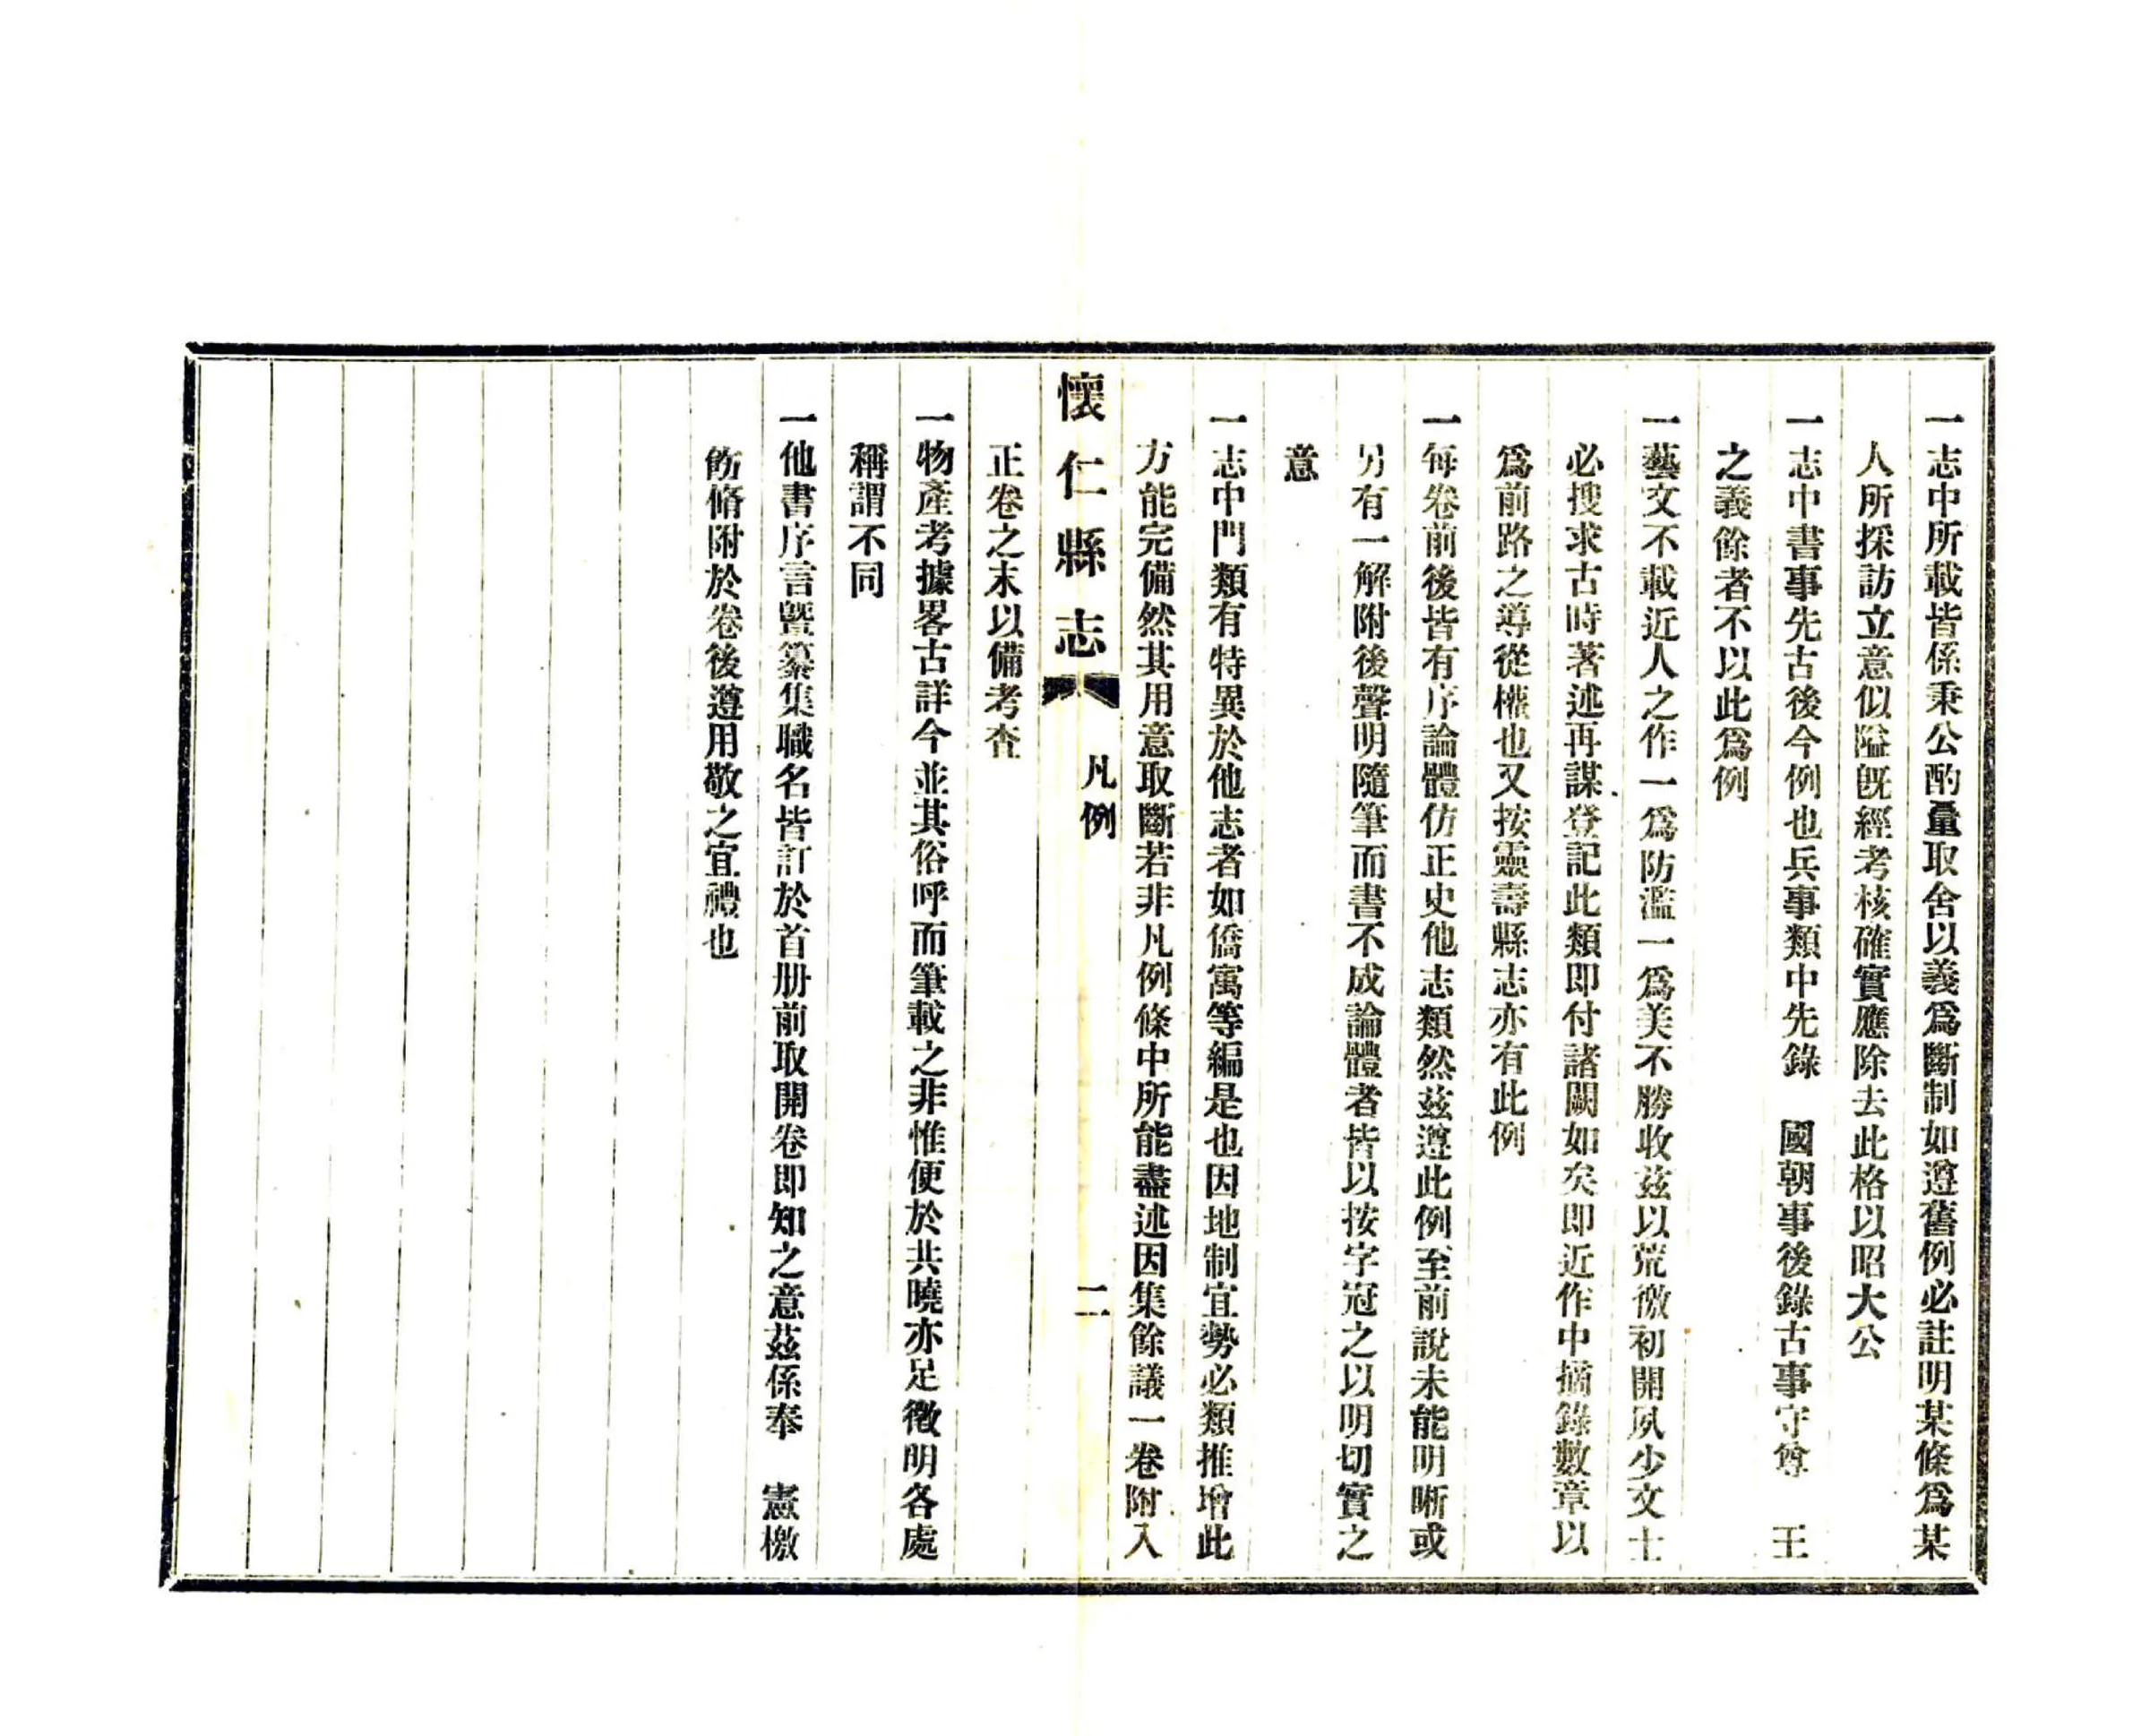 一志中所載皆係秉公酌量取舍以義爲斷制如遵舊例必註明某條爲某
人所採訪立意似隘旣經考核確實應除去此格以昭大公
一志中書事先古後今例也兵事類中先錄　國朝事後錄古事守尊　王
之義餘者不以此爲例
一藝文不載近人之作一爲防濫一爲美不勝收茲以荒徼初開夙少文士
必搜求古時著述再謀登記此類即付諸闕如矣即近作中摘錄數章以
爲前路之導從權也又按靈壽縣志亦有此例
一每卷前後皆有序論體仿正史他志類然茲遵此例至前說未能明晰或
另有一解附後聲明隨筆而書不成論體者皆以按字冠之以明切實之
意
一志中門類有特異於他志者如僑寓等編是也因地制宜勢必類推增此
方能完備然其用意取斷若非凡例條中所能盡述因集餘議一卷附入
懷仁縣志
凡例
二
正卷之末以備考查
一物產考據畧古詳今並其俗呼而筆載之非惟便於共曉亦足徵明各處
稱謂不同
一他書序言曁纂集職名皆訂於首册前取開卷即知之意茲係奉　憲檄
飭脩附於卷後遵用敬之宜禮也